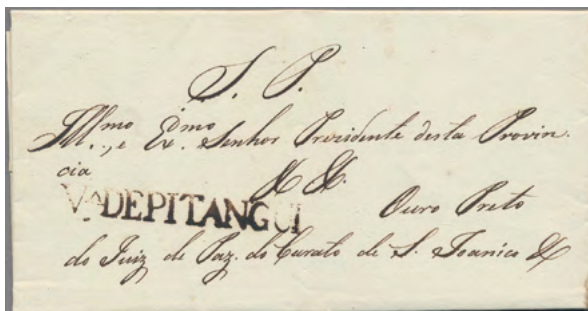 S. P.
Ill.mo, e Ex.mo Senhor Prezidente desta Provin-
cia
&. &.
V.A DE PITANGUI
Ouro Preto
do Juiz de Paz do Curato de S. Joanico &